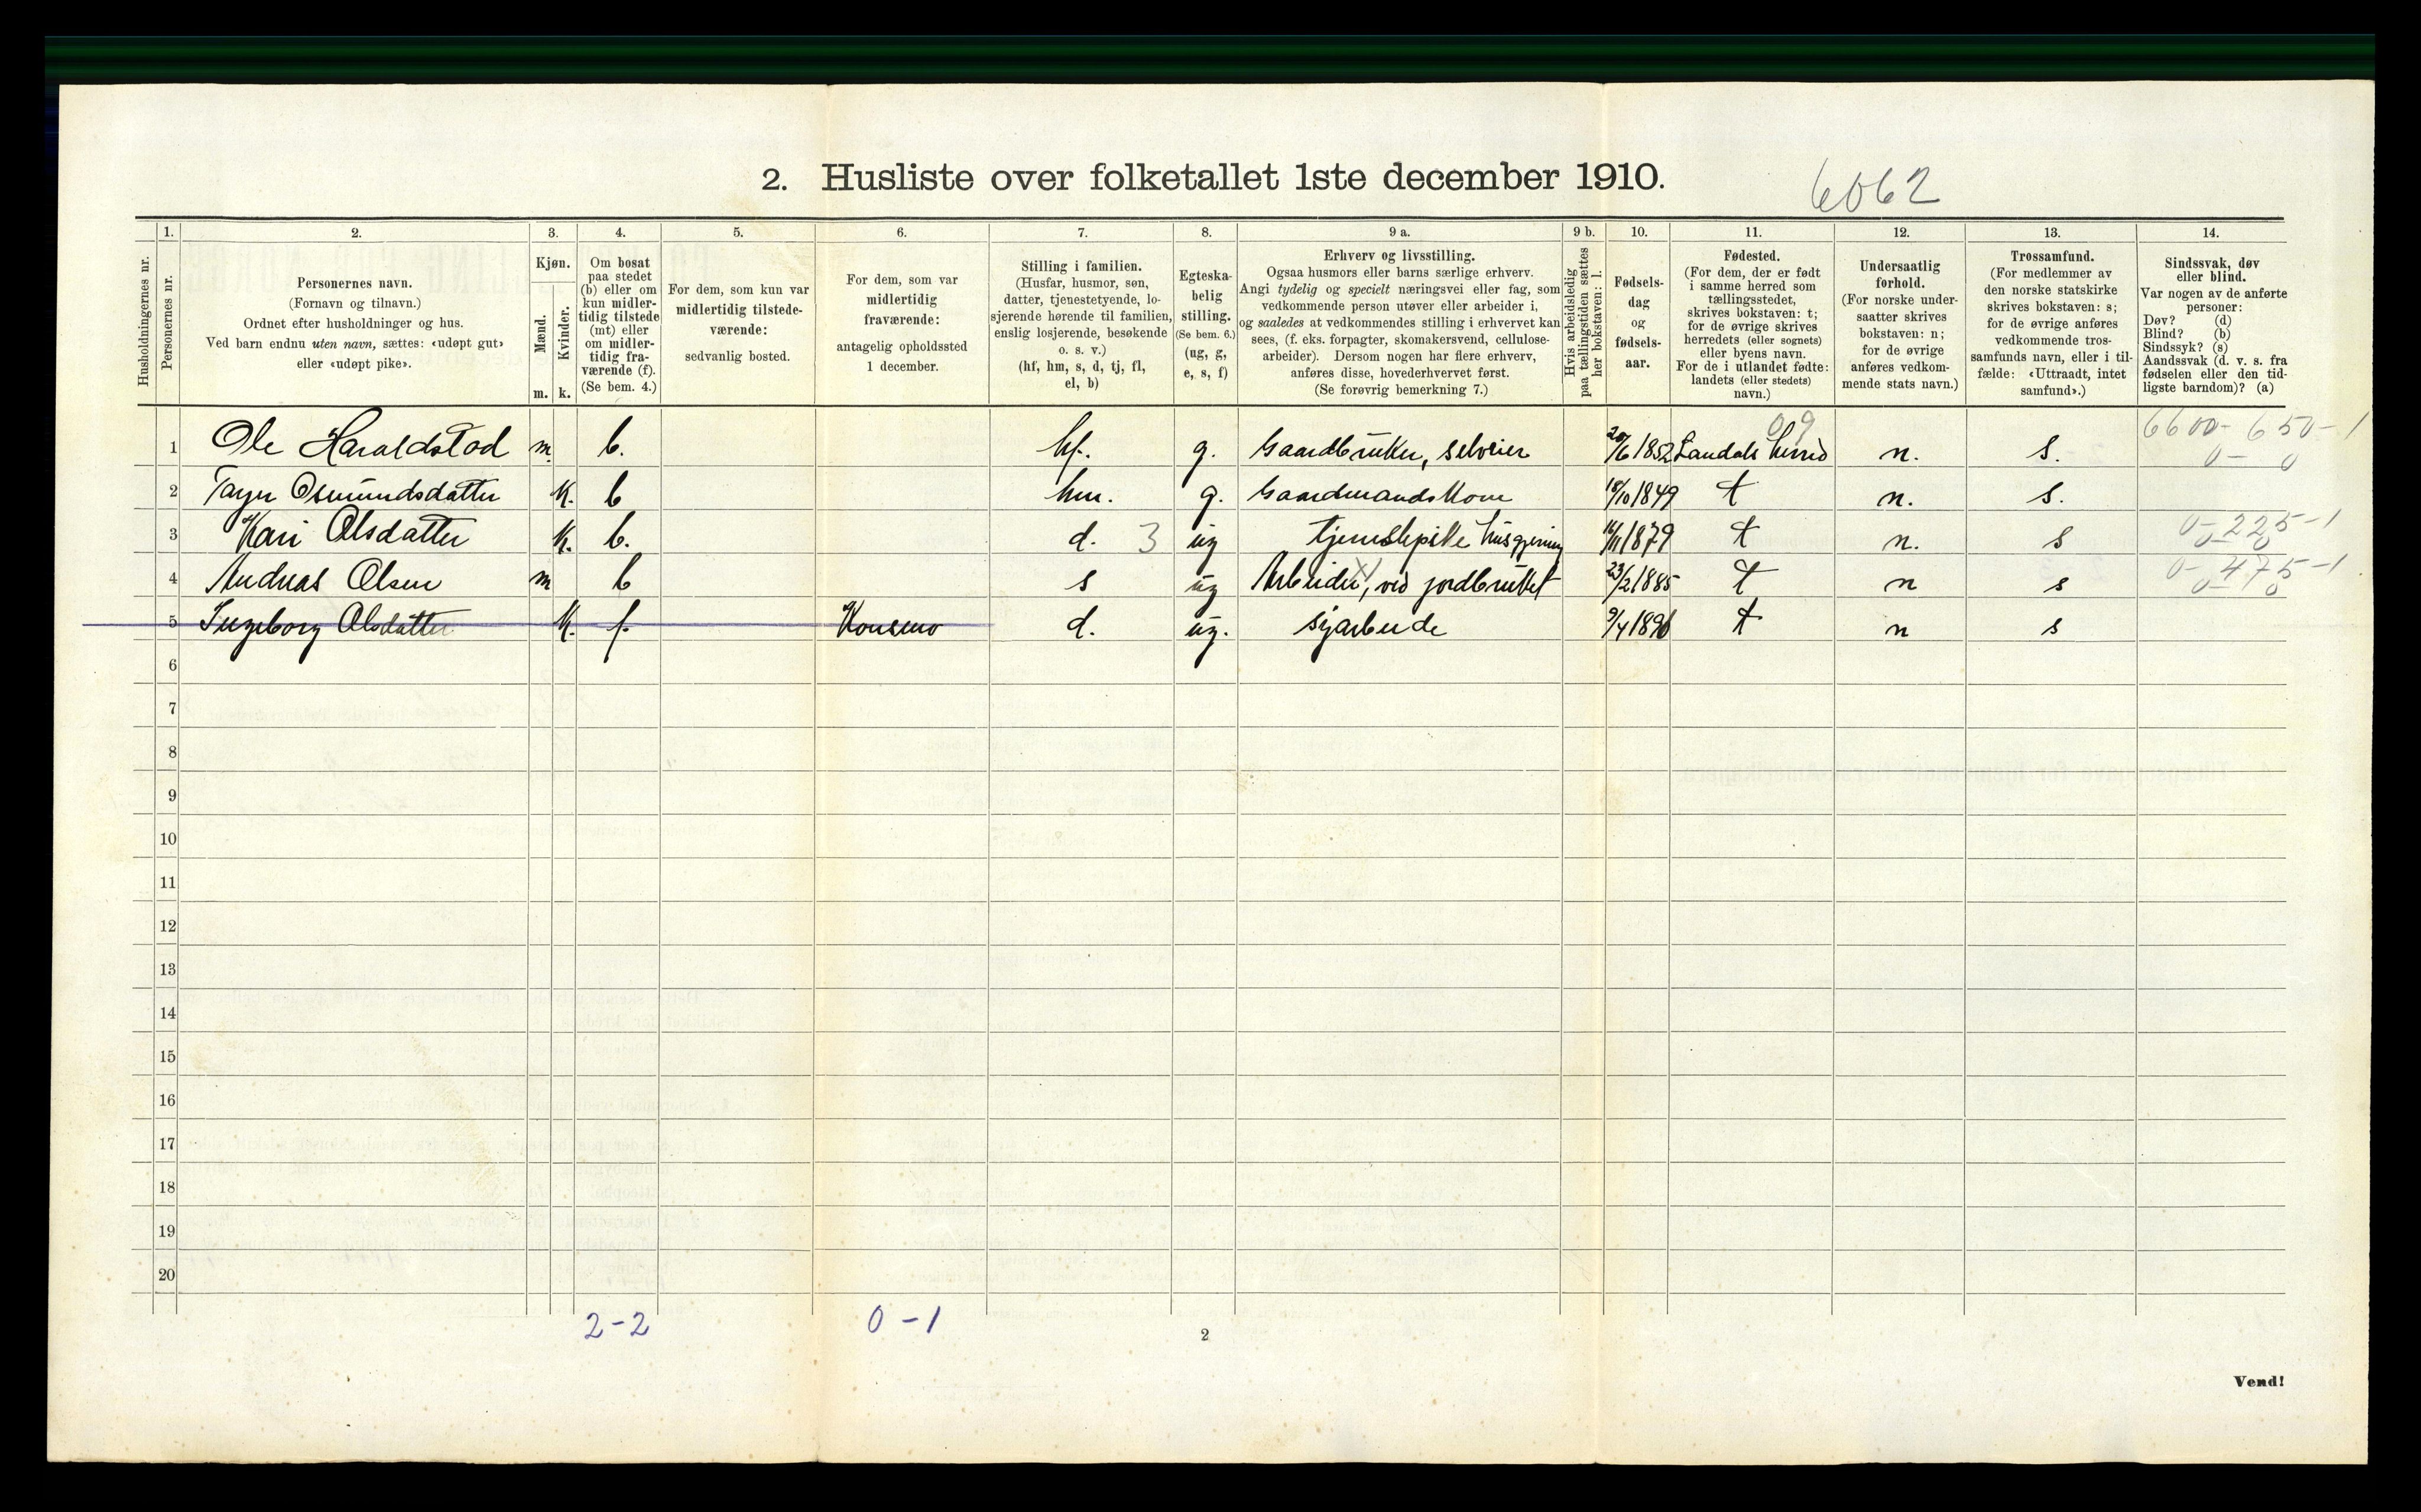 2. Husliste over folketallet 1ste december 1910.
6062
1. 2. 3. 4. 5. 6. 7. 8. 9 a. 9 b. 10. 11. 12. 13. 14.
Husholdningernes nr.
Personernes nr.
Personernes navn.
(Fornavn og tilnavn.)
Ordnet efter husholdninger og hus.
Ved barn endnu uten navn, sættes: «udøpt gut»
eller «udøpt pike».
Kjøn.
Mænd.
Kvinder.
m. k.
Om bosat
paa stedet
(b) eller om
kun midler-
tidig tilstede
(mt) eller
om midler-
tidig fra-
værende (f).
(Se bem. 4.)
For dem, som kun var
midlertidig tilstede-
værende:
sedvanlig bosted.
For dem, som var
midlertidig
fraværende:
antagelig opholdssted
1 december.
Stilling i familien.
(Husfar, husmor, søn,
datter, tjenestetyende, lo-
sjerende hørende til familien,
enslig losjerende, besøkende
o. s. v.)
(hf, hm, s, d, tj, fl,
el, b)
Egteska-
belig
stilling.
(Se bem. 6.)
(ug, g,
e, s, f)
Erhverv og livsstilling.
Ogsaa husmors eller barns særlige erhverv.
Angi tydelig og specielt næringsvei eller fag, som
vedkommende person utøver eller arbeider i,
og saaledes at vedkommendes stilling i erhvervet kan
sees, (f. eks. forpagter, skomakersvend, cellulose-
arbeider). Dersom nogen har flere erhverv,
anføres disse, hovederhvervet først.
(Se forøvrig bemerkning 7.)
Hvis arbeidsledig
paa tællingstiden sættes
her bokstaven: l.
Fødsels-
dag
og
fødsels-
aar.
Fødested.
(For dem, der er født
i samme herred som
tællingsstedet,
skrives bokstaven: t;
for de øvrige skrives
herredets (eller sognets)
eller byens navn.
For de i utlandet fødte:
landets (eller stedets)
navn.)
Undersaatlig
forhold.
(For norske under-
saatter skrives
bokstaven: n;
for de øvrige
anføres vedkom-
mende stats navn.)
Trossamfund.
(For medlemmer av
den norske statskirke
skrives bokstaven: s;
for de øvrige anføres
vedkommende tros-
samfunds navn, eller i til-
fælde: «Uttraadt, intet
samfund».)
Sindssvak, døv
eller blind.
Var nogen av de anførte
personer:
Døv? (d)
Blind? (b)
Sindssyk? (s)
Aandssvak (d. v. s. fra
fødselen eller den tid-
ligste barndom)? (a)
09 6600-650-1
1 Ole Haraldstad m. b. hf. g. Gaardbruker, selveier 20/6 1852 Laudals herred n. s. 0- 0
2 Osmundsdatter k. b hm. g. Gaardmandskone 18/10 1849 t n. s.
0-225-1
3 Kari Olsdatter k. b. d. 3 ug tjenestepike husgjerning 16/11 1879 t n. s 0- 0
0-475-1
4 Andreas Olsen m b s ug Arbeider, ved jordbruket 23/2 1885 t n s 0- 0
5 Ingeborg Olsdatter k. f. Konsmo d. ug. syarbeide 9/4 1890 t n s
6
7
8
9
10
11
12
13
14
15
16
17
18
19
20
2-2 0-1
2
Vend!